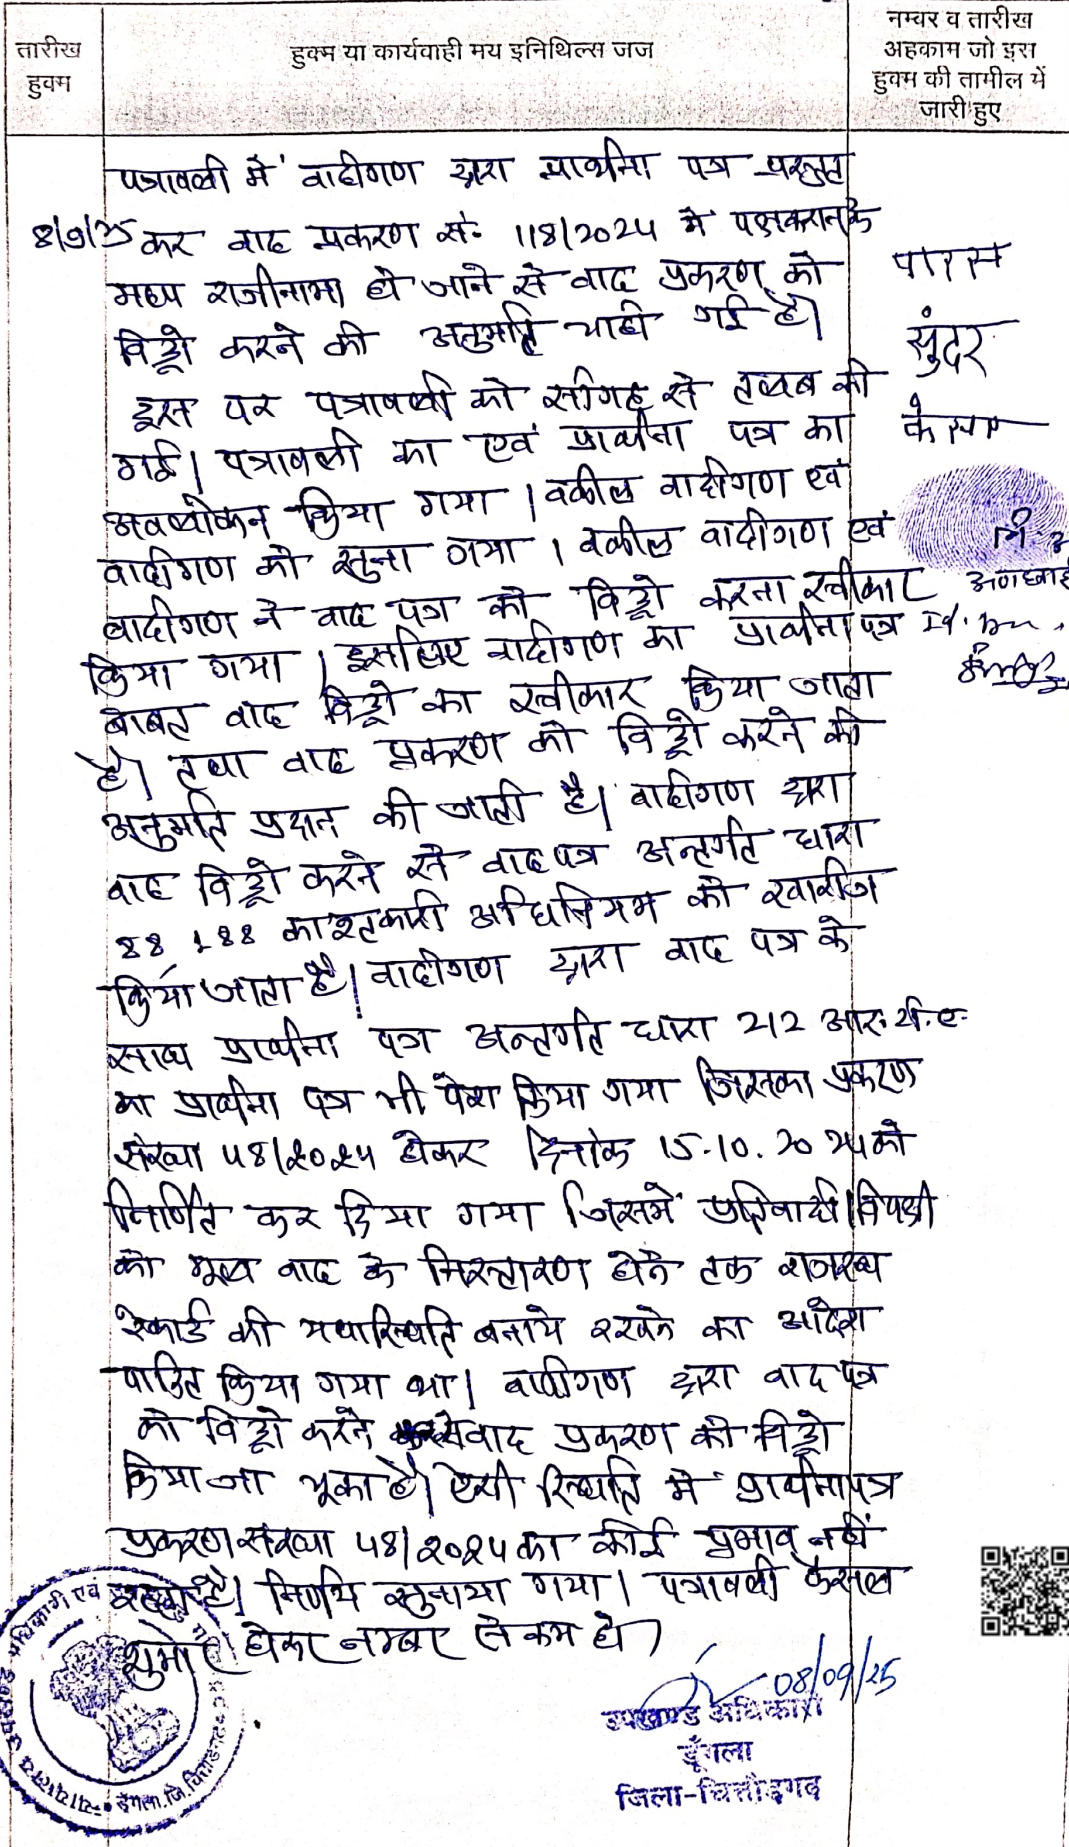 तारीख
हुक्म
हुक्म या कार्यवाही मय इनिथिल्स जज
नम्बर व तारीख
अहकाम जो इस
हुक्म की तामील में
जारी हुए
पत्रावली में वादीगण द्वारा प्रार्थना पत्र प्रस्तुत
8/9/25 कर वाद प्रकरण सं. 118/2024 में पक्षकारान के
मध्य राजीनामा हो जाने से वाद प्रकरण को
विड्रो करने की अनुमति चाही गई है।
इस पर पत्रावली को सीगह से तलब की
गई। पत्रावली का एवं प्रार्थना पत्र का
अवलोकन किया गया। वकील वादीगण एवं
वादीगण को सुना गया। वकील वादीगण एवं
वादीगण ने वाद पत्र को विड्रो करना स्वीकार
किया गया। इसलिए वादीगण का प्रार्थना पत्र
बाबत वाद विड्रो का स्वीकार किया जाता
है। तथा वाद प्रकरण को विड्रो करने की
अनुमति प्रदान की जाती है। वादीगण द्वारा
वाद विड्रो करने से वाद पत्र अन्तर्गत धारा
88 188 काश्तकारी अधिनियम को खारीज
किया जाता है। वादीगण द्वारा वाद पत्र के
साथ प्रार्थना पत्र अन्तर्गत धारा 212 आर.टी.ए.
का प्रार्थना पत्र भी पेश किया गया जिसका प्रकरण
संख्या 48/2024 होकर दिनांक 15.10.2024 को
निर्णित कर दिया गया जिसमें प्रतिवादी/विपक्षी
को मूल वाद के निस्तारण होने तक राजस्व
रेकार्ड की यथास्थिति बनाये रखने का आदेश
पारित किया गया था। वादीगण द्वारा वाद पत्र
को विड्रो करने से वाद प्रकरण को विड्रो
किया जा चूका है। ऐसी स्थिति में प्रार्थना पत्र
प्रकरण संख्या 48/2024 का कोई प्रभाव नहीं
है। निर्णय सुनाया गया। पत्रावली फैसल
शुमार होकर नम्बर से कम हो।
पारस
सुंदर
कैलाश
नि.अ
अणछाई
08/09/25
उपखण्ड अधिकारी
डूँगला
जिला-चित्तौड़गढ़
न्यायालय उपखण्ड अधिकारी एवं
डूँगला, जि.चित्तौड़गढ़